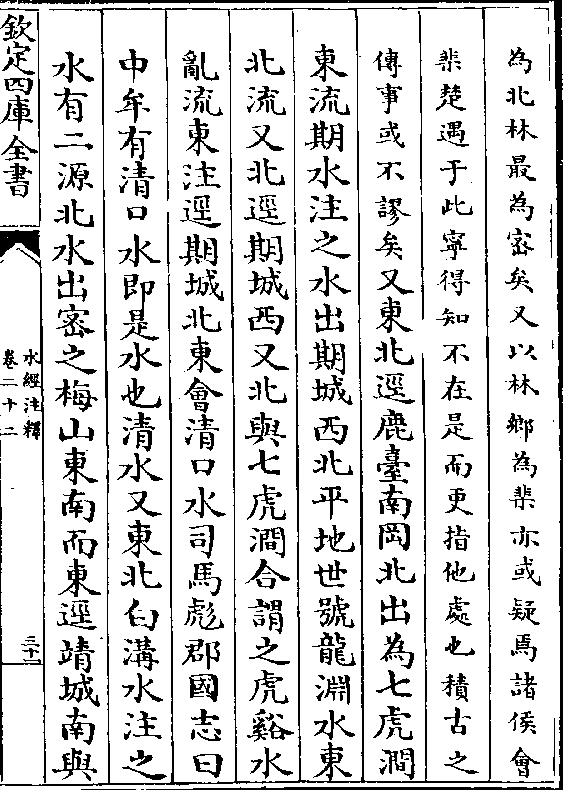 為北林最為宻矣又以林鄉為棐亦或疑焉諸侯會
棐楚遇于此寧得知不在是而更指他處也積古之
傳事或不謬矣又東北逕鹿臺南岡北出為七虎澗
東流期水注之水出期城西北平地世號龍淵水東
北流又北逕期城西又北與七虎澗合謂之虎谿水
亂流東注逕期城北東會清口水司馬彪郡國志曰
中牟有清口水即是水也清水又東北白溝水注之
水有二源北水出宻之梅山東南而東逕靖城南與
欽定四庫全書
水經注釋
卷二十二
三十二